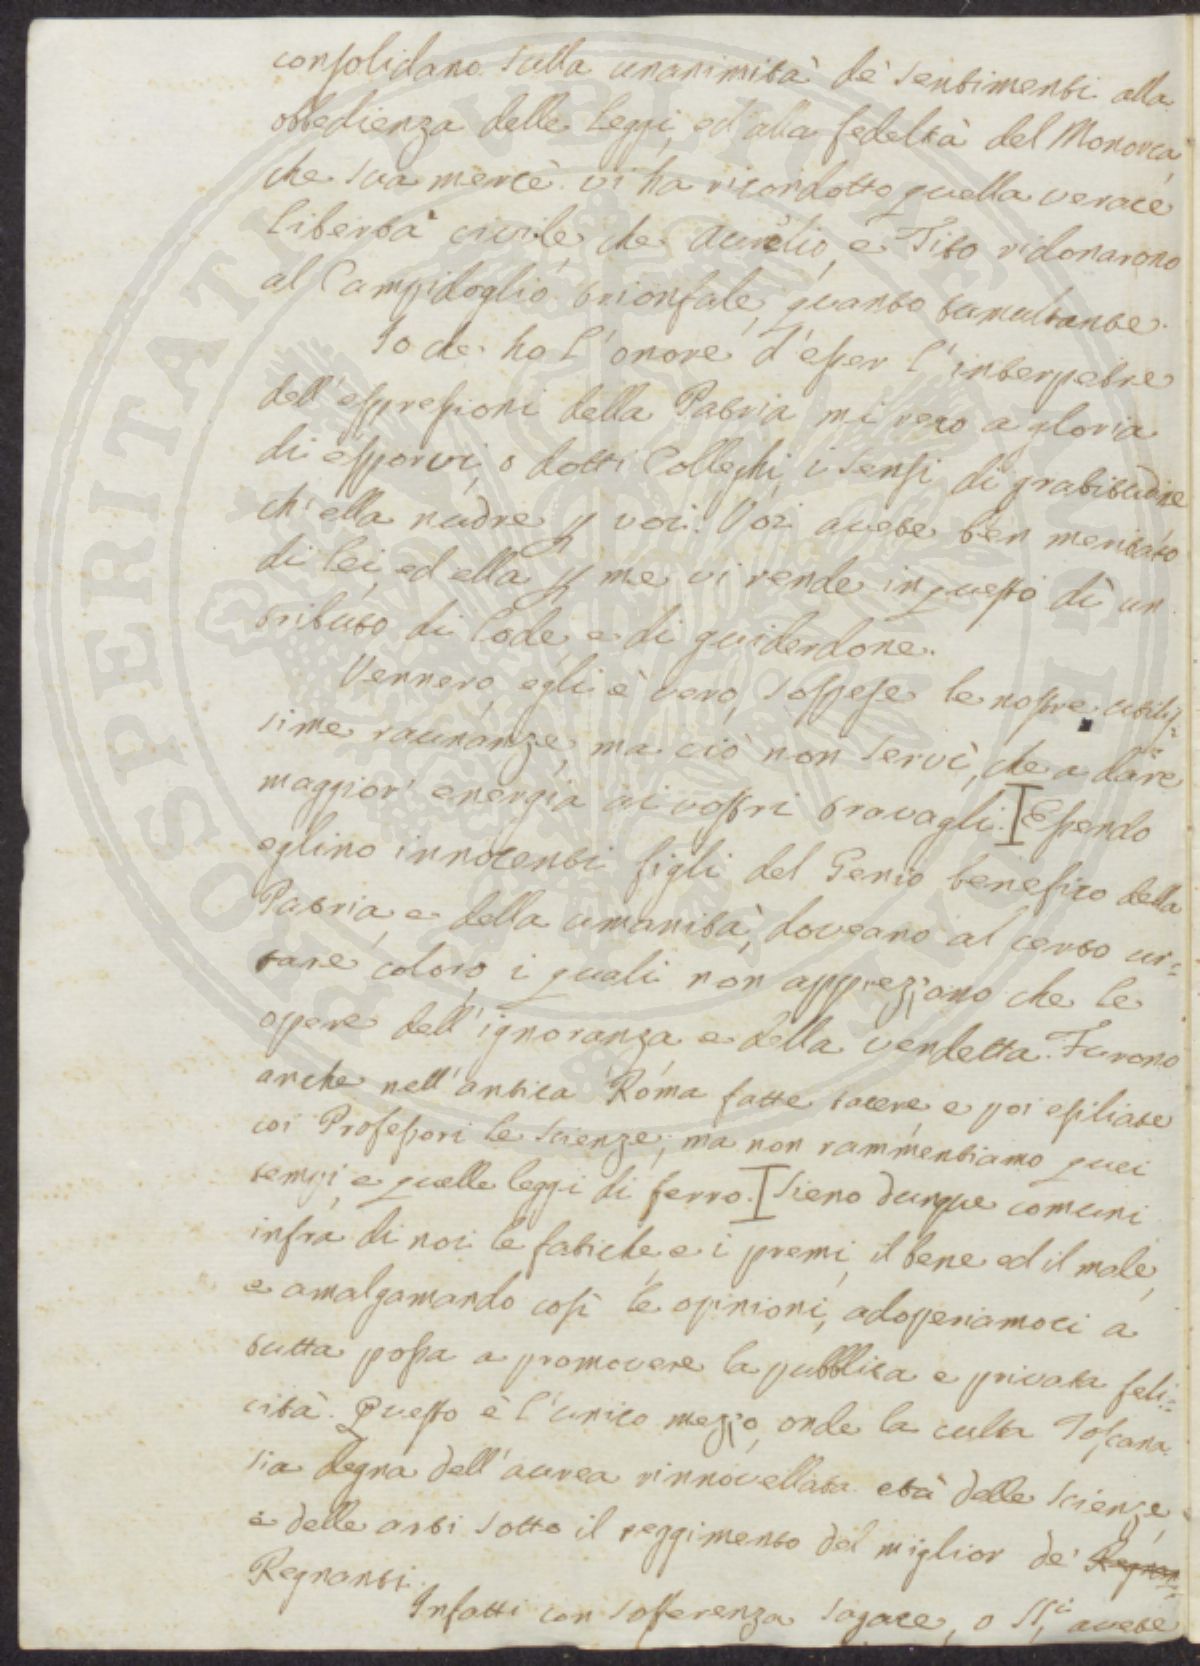 consolidano sulla unanimità de' sentimenti alla
obbedienza delle Leggi, ed alla fedeltà del Monarca,
che sua mercè vi ha ricondotto quella verace
libertà civile, che Aurelio, e Tito ridonarono
al Campidoglio trionfale, quanto tumultante.
Io che ho l'onore d'esser l'interpetre
dell'espressioni della Patria mi reco a gloria
di esporvi, o dotti Colleghi, i sensi di gratitudine
ch'ella nudre p voi. Voi avete ben meritato
di lei, ed ella p me vi rende in questo dì un
tributo di lode, e di guiderdone.
Vennero, egli è vero, sospese le nostre utilis=
sime raunanze, ma ciò non servì, che a dare
maggior energia ai vostri travagli. Essendo
eglino innocenti figli del Genio benefico della
Patria, e della umanità, doveano al certo ur=
tare coloro, i quali non apprezzano che le
opere dell'ignoranza e della vendetta. Furono
anche nell'antica Roma fatte tacere e poi esiliate
coi Professori le scienze; ma non rammentiamo quei
tempi, e quelle leggi di ferro. Sieno dunque comuni
infra di noi le fatiche, e i premi, il bene ed il male,
e amalgamando così le opinioni, adoperiamoci a
tutta possa a promovere la pubblica e privata feli=
cità. Questo è l'unico mezzo, onde la culta Toscana
sia degna dell'aurea rinnovellata età delle scienze,
e delle arti sotto il reggimento del miglior de' Regnan=
Regnanti.
Infatti con sofferenza sagace, o SS.i, avete
PROSPERITATI PVBLICAE